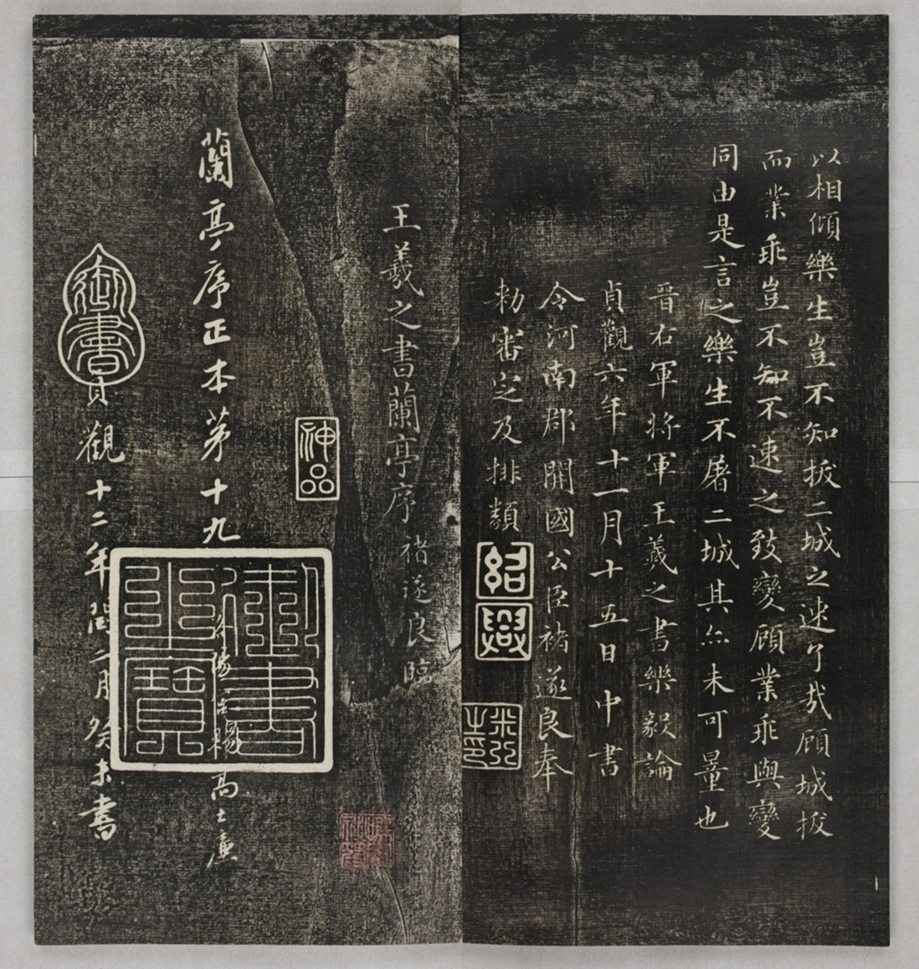 以相傾樂生豈不知拔二城之速了哉顧城拔
而業乖豈不知不速之致變顧業乖與變
同由是言之樂生不屠二城其亦未可量也
晉右軍將軍王羲之書樂毅論
貞觀六年十一月十五日中書
令河南郡開國公臣褚遂良奉
勑審定及排類
紹興
米芾之印
王羲之書蘭亭序
褚遂良臨
神品
蘭亭序正本第十九
賜高士廉
御書之寶
御書
貞觀十二年閏二月癸未書